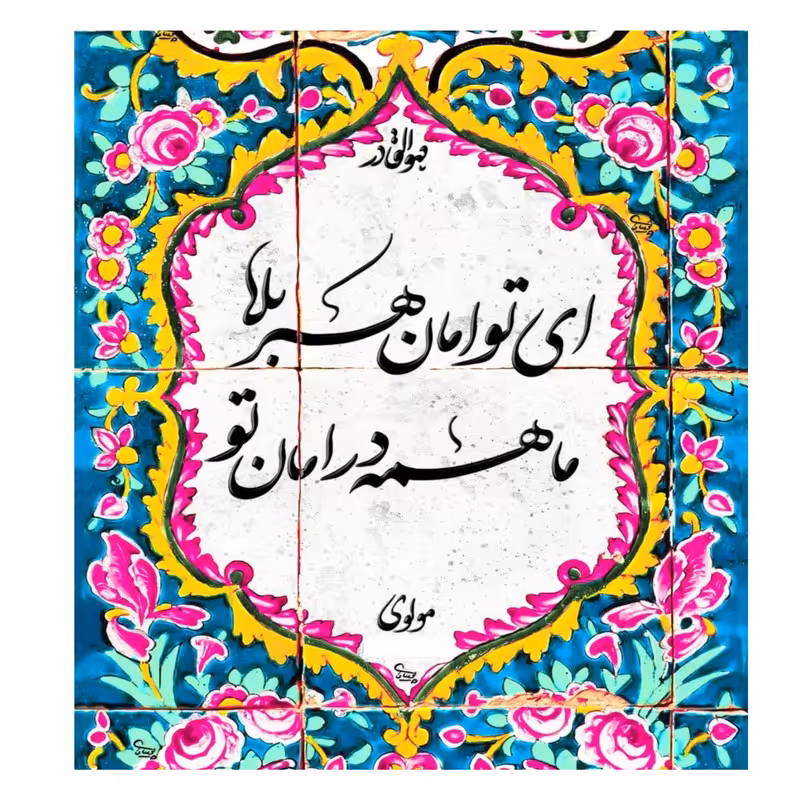 هوالقادر
ای تو امان هر بلا
ما همه در امان تو
مولوی